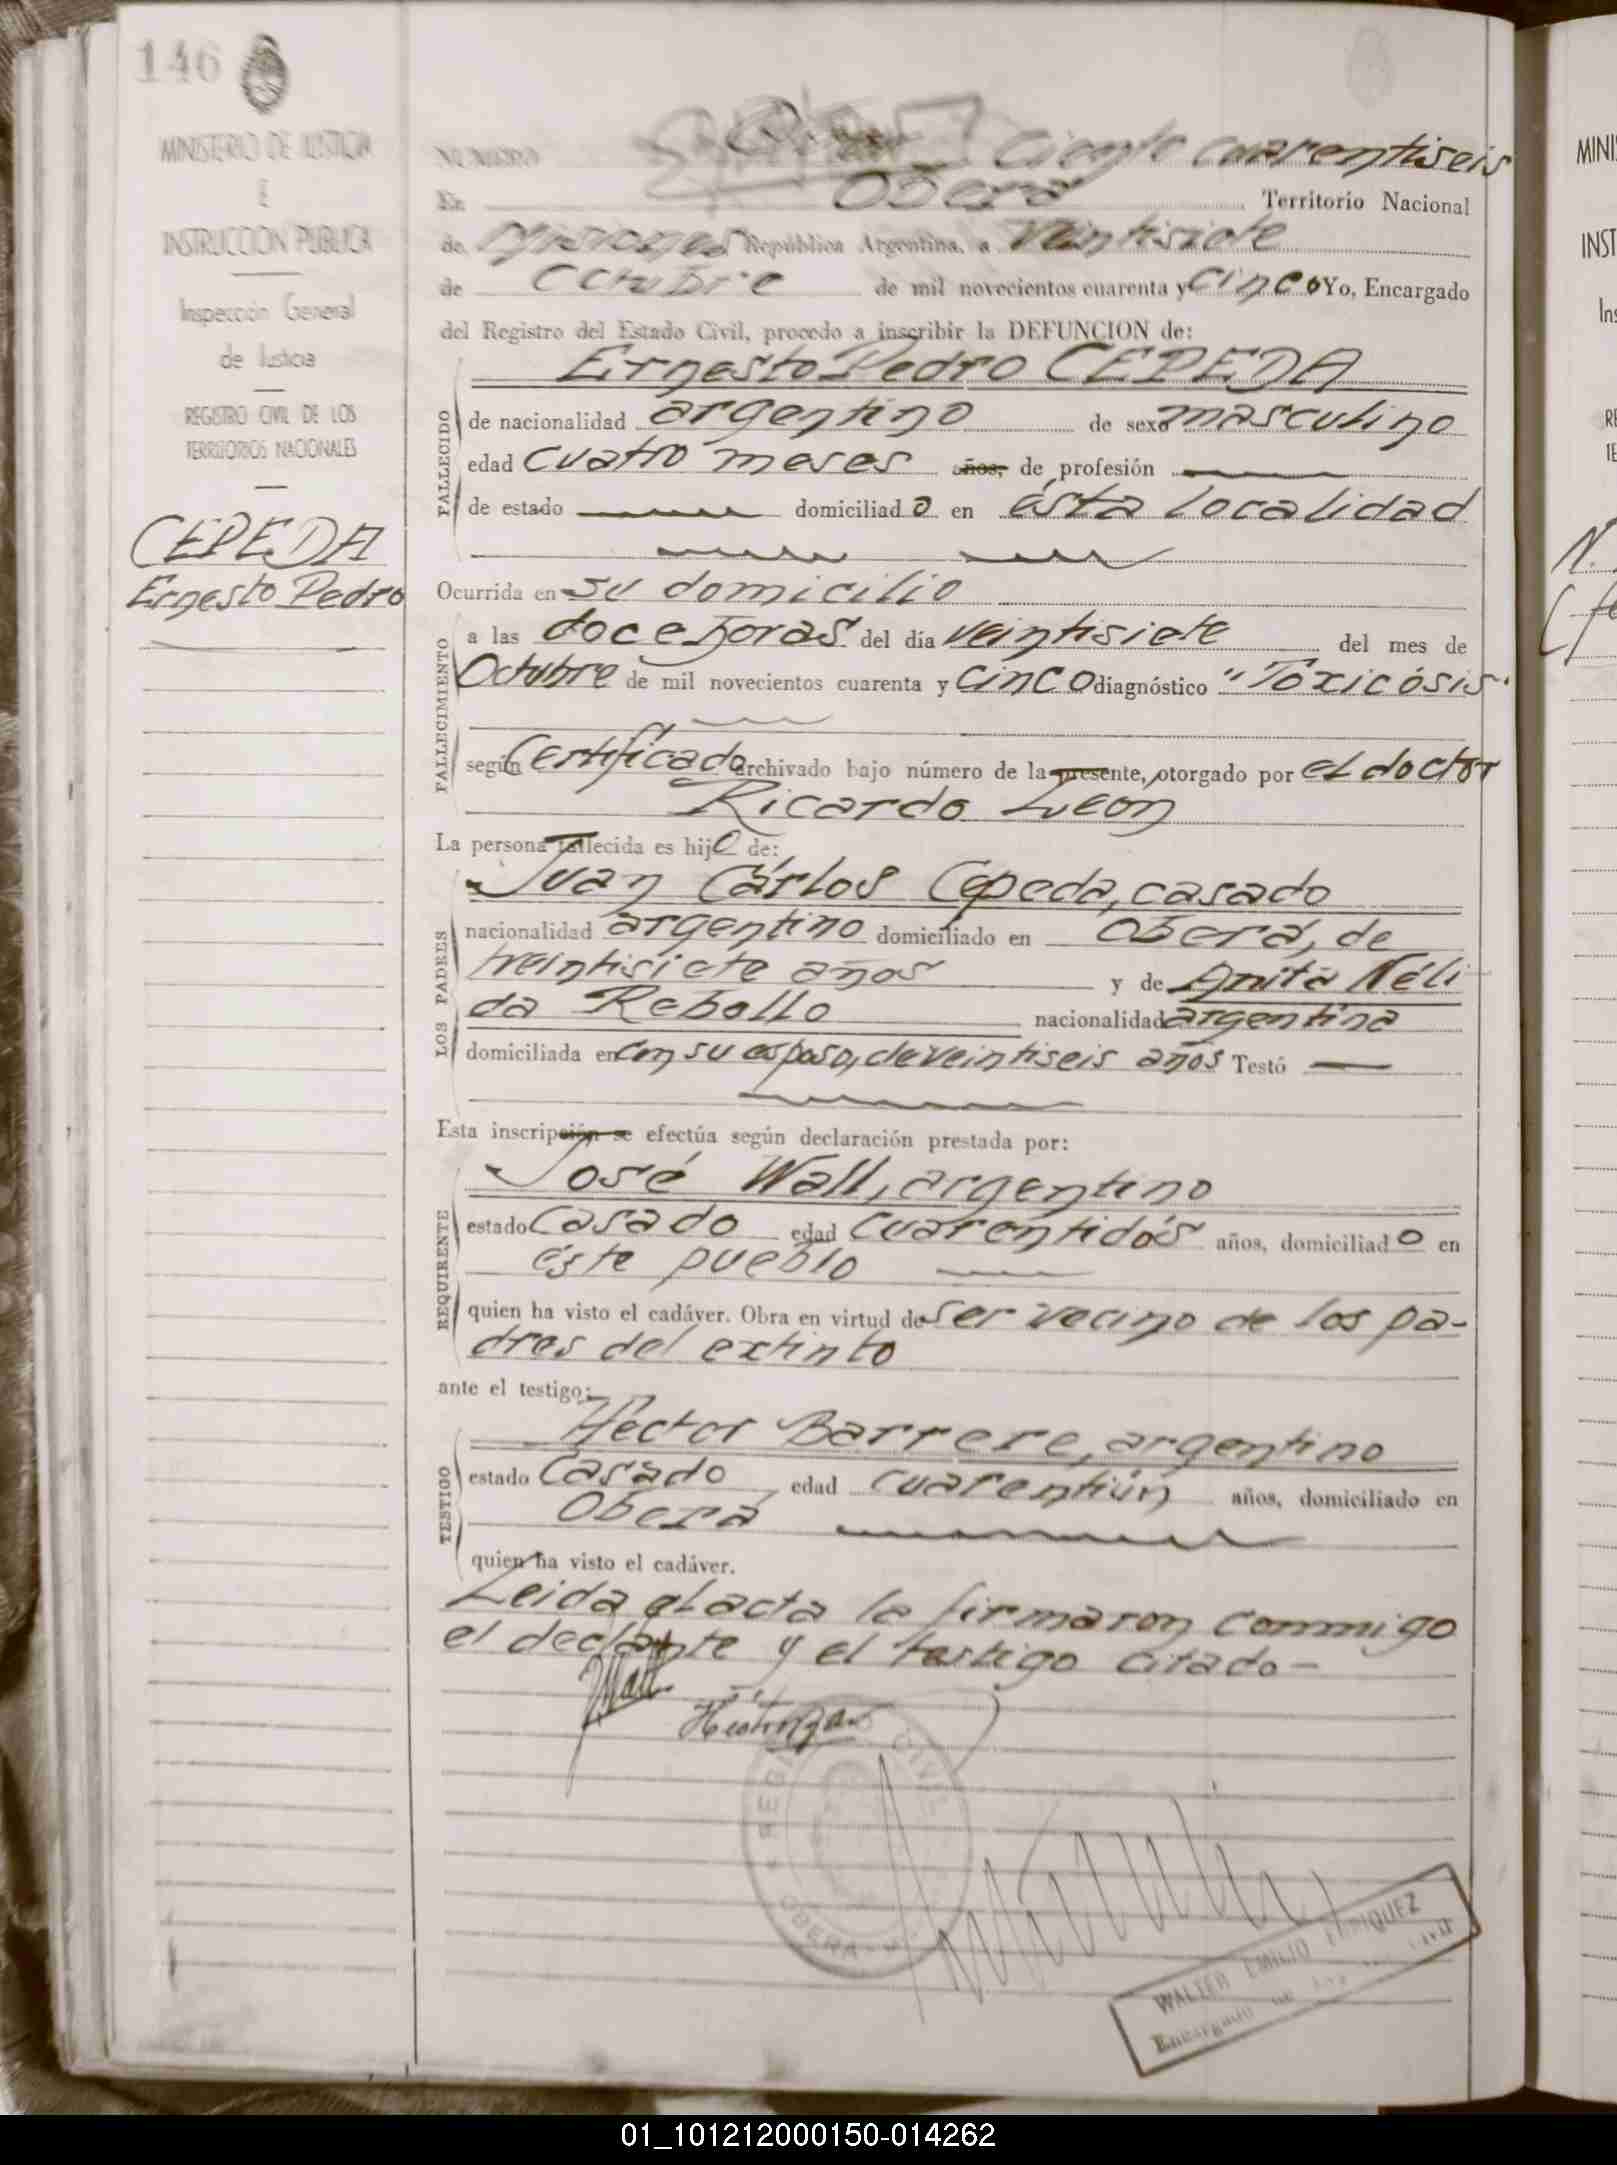 146
MINISTERIO DE JUSTICIA
E
INSTRUCCION PUBLICA
Inspección General
de Justicia
REGISTRO CIVIL DE LOS
TERRITORIOS NACIONALES
CEPEDA
Ernesto Pedro
NUMERO Ciento cuarentiseis
En Oberá Territorio Nacional
de Misiones República Argentina, a veintisiete
de Octubre de mil novecientos cuarenta y cinco Yo, Encargado
del Registro del Estado Civil, procedo a inscribir la DEFUNCION de:
FALLECIDO
Ernesto Pedro CEPEDA
de nacionalidad argentino de sexo masculino
edad cuatro meses años, de profesión
de estado domiciliado en ésta localidad
Ocurrida en su domicilio
FALLECIMIENTO
a las doce horas del día veintisiete del mes de
Octubre de mil novecientos cuarenta y cinco diagnóstico "Toxicósis"
según certificado archivado bajo número de la presente, otorgado por el doctor
Ricardo Leon
La persona fallecida es hijo de:
LOS PADRES
Juan Cárlos Cepeda, casado
nacionalidad argentino domiciliado en Oberá, de
treintisiete años y de Anita Néli
da Rebollo nacionalidad argentina
domiciliada en con su esposo, de veintiseis años Testó
Esta inscripción se efectúa según declaración prestada por:
REQUIRENTE
José Wall, argentino
estado casado edad cuarentidós años, domiciliado en
éste pueblo
quien ha visto el cadáver. Obra en virtud de ser vecino de los pa-
dres del extinto
ante el testigo:
TESTIGO
Héctor Barrere, argentino
estado casado edad cuarentiún años, domiciliado en
Oberá
quien ha visto el cadáver.
Leida el acta la firmaron conmigo
el declante y el testigo citado-
JWall
REGISTRO CIVIL
OBERA
WALTER EMILIO ENRIQUEZ
Encargado
N.
MINI
INST
Ins
RE
TE
01_101212000150-014262